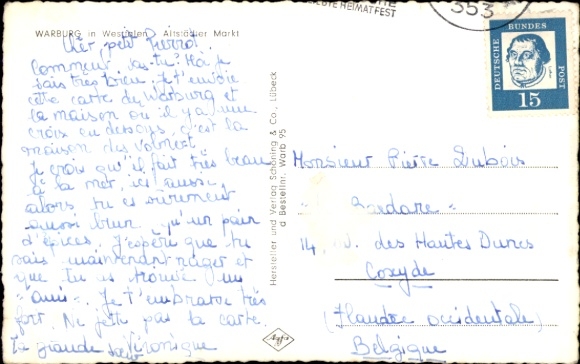 WARBURG in Westfalen Altstädter Markt
Cher petit Pierrot,
Comment vas-tu? Moi je
vais très bien. Je t'envoie
cette carte de Warburg et
la maison où il y a une
croix en dessous, c'est la
maison des
Je crois qu'il fait très beau
à la mer, ici aussi,
alors tu es sûrement
aussi brun qu'un pain
d'épices. J'espère que tu
sais maintenant nager et
que tu as trouvé un
"ami". Je t'embrasse très
fort. Ne jette pas la carte.
Ta grande sœur Véronique
Hersteller und Verlag Schöning & Co., Lübeck
a Bestellnr. Warb 95
Agfa
HEIMATFEST
353
DEUTSCHE BUNDES POST
15
Monsieur Pierre Dubois
14, des Hautes Dunes
Coxyde
(Flandre occidentale)
Belgique